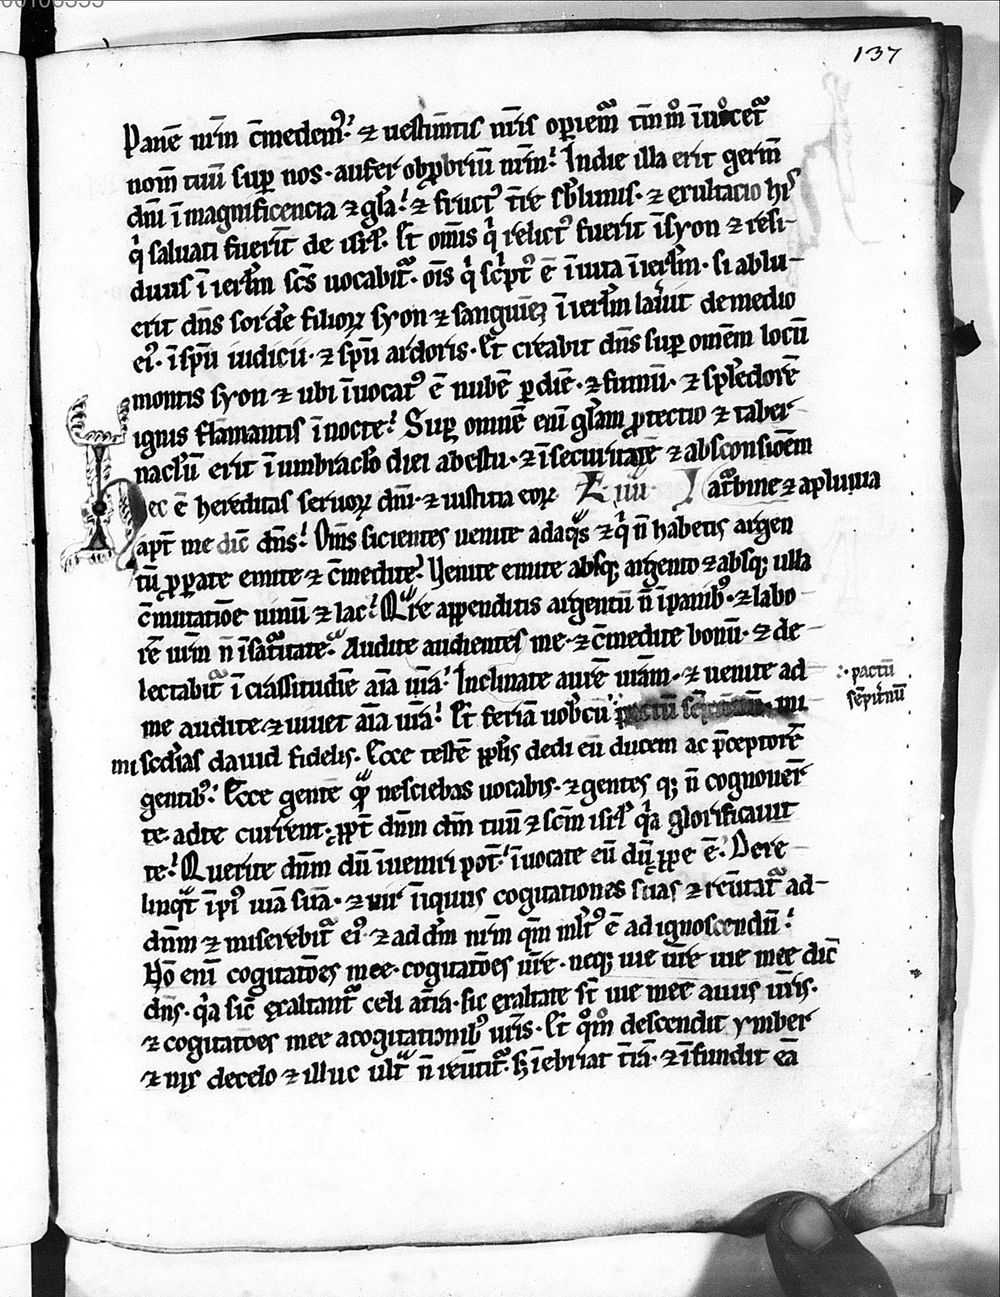 137
Panē nr̄m cōmedemꝰ. ⁊ uestimētis nr̄is opiem̄ tm̄mō īuocet᷑
nom̄ tuū suꝑ nos. aufer obꝓbriū nr̄m. Indie illa erit germ̄
dn̄i ī magnificencia ⁊ gl̄a. ⁊ fructꝰ tr̄e sb̄limis. ⁊ exultacio hiˢ
qͥ saluati fuerīt de isrl̄. Et om̄is qͥ relictꝰ fuerit īsyon ⁊ resi-
duus ī ierl̄m scs̄ uocabit᷑. oīs qͥ scͥptꝰ ē ī uita ī ierl̄m. si ablu-
erit dn̄s sordē filioꝝ syon ⁊ sanguinē ī ierl̄m lauit demedio
eiꝰ. ī sp̄u iudicii. ⁊ sp̄u ardoris. Et creabit dn̄s suꝑ omēm locū
montis syon ⁊ ubi īuocatꝰ ē nubē ꝑdiē. ⁊ fumū. ⁊ splēdorē
ignis flāmantis īnocte. Suꝑ omnē eni gl̄am ꝓtectio ⁊ taber-
nacl̄m erit ī umbracl̄o diei abestu. ⁊ īsecuritatē ⁊ absconsioēm
Hec ē hereditas seruoꝝ dn̄i. ⁊ iusticia eoꝝ aturbine ⁊ apluuia
aptͣ me dic̄ dn̄s. Om̄s sicientes uenite adaqͣs ⁊ qͥ n̄ habetis argen
tū ꝓꝑate emite ⁊ cōmedite. Uenite emite absqꝫ argento ⁊ absqꝫ ulla
cōmutatiōe uinū ⁊ lac. Qͣre appenditis argentū n̄ īpanibꝰ. ⁊ labo-
rē ur̄m n̄ īsaturitate. Audite audientes me. ⁊ cōmedite bonū. ⁊ de-
lectabit᷑ ī crassitudīe aīa ur̄a. Inclinate aurē ur̄am. ⁊ uenite ad
me audite. ⁊ uiuet aīa ur̄a. Et feriā uobcū pactū sēpit̄nū. mi
∴ pactū
sēpit̄nū
miscd̄ias dauid fidelis. Ecce testē ppl̄is dedi eū ducem ac p̄ceptorē
gentibꝰ. Ecce gentē qͣ nesciebas uocabis. ⁊ gentes q; n̄ cognouer̄
te. adte current. ꝓpt̄ dn̄m dm̄ tuū ⁊ scm̄ isrl̄ qͥa glorificauit
te. Querite dn̄m dū īueniri pot̄. īuocate eū dū ꝓpe ē. Dere-
linqͣt īpiꝰ uiā suā. ⁊ uir īiquus cogitationes suas ⁊ reūtat᷑ ad-
dn̄m ⁊ miserebit᷑ eiꝰ. ⁊ ad dm̄ nr̄m qm̄ ml̄tꝰ ē ad ignoscendū.
Nō eni cogitatōes mee. cogitatōes ur̄e. neqꝫ uie ur̄e uie mee dic̄
dn̄s. qͥa sic̄ exaltant᷑ celi atr̄a. sic exaltate st̄ uie mee auiis ur̄is.
⁊ cogitatōes mee acogitationibꝰ ur̄is. Et qͦmͦ descendit ymber
⁊ nix decelo ⁊ illuc ult̄ n̄ reūtit᷑. s; īebriat tr̄ā. ⁊ īfundit eā